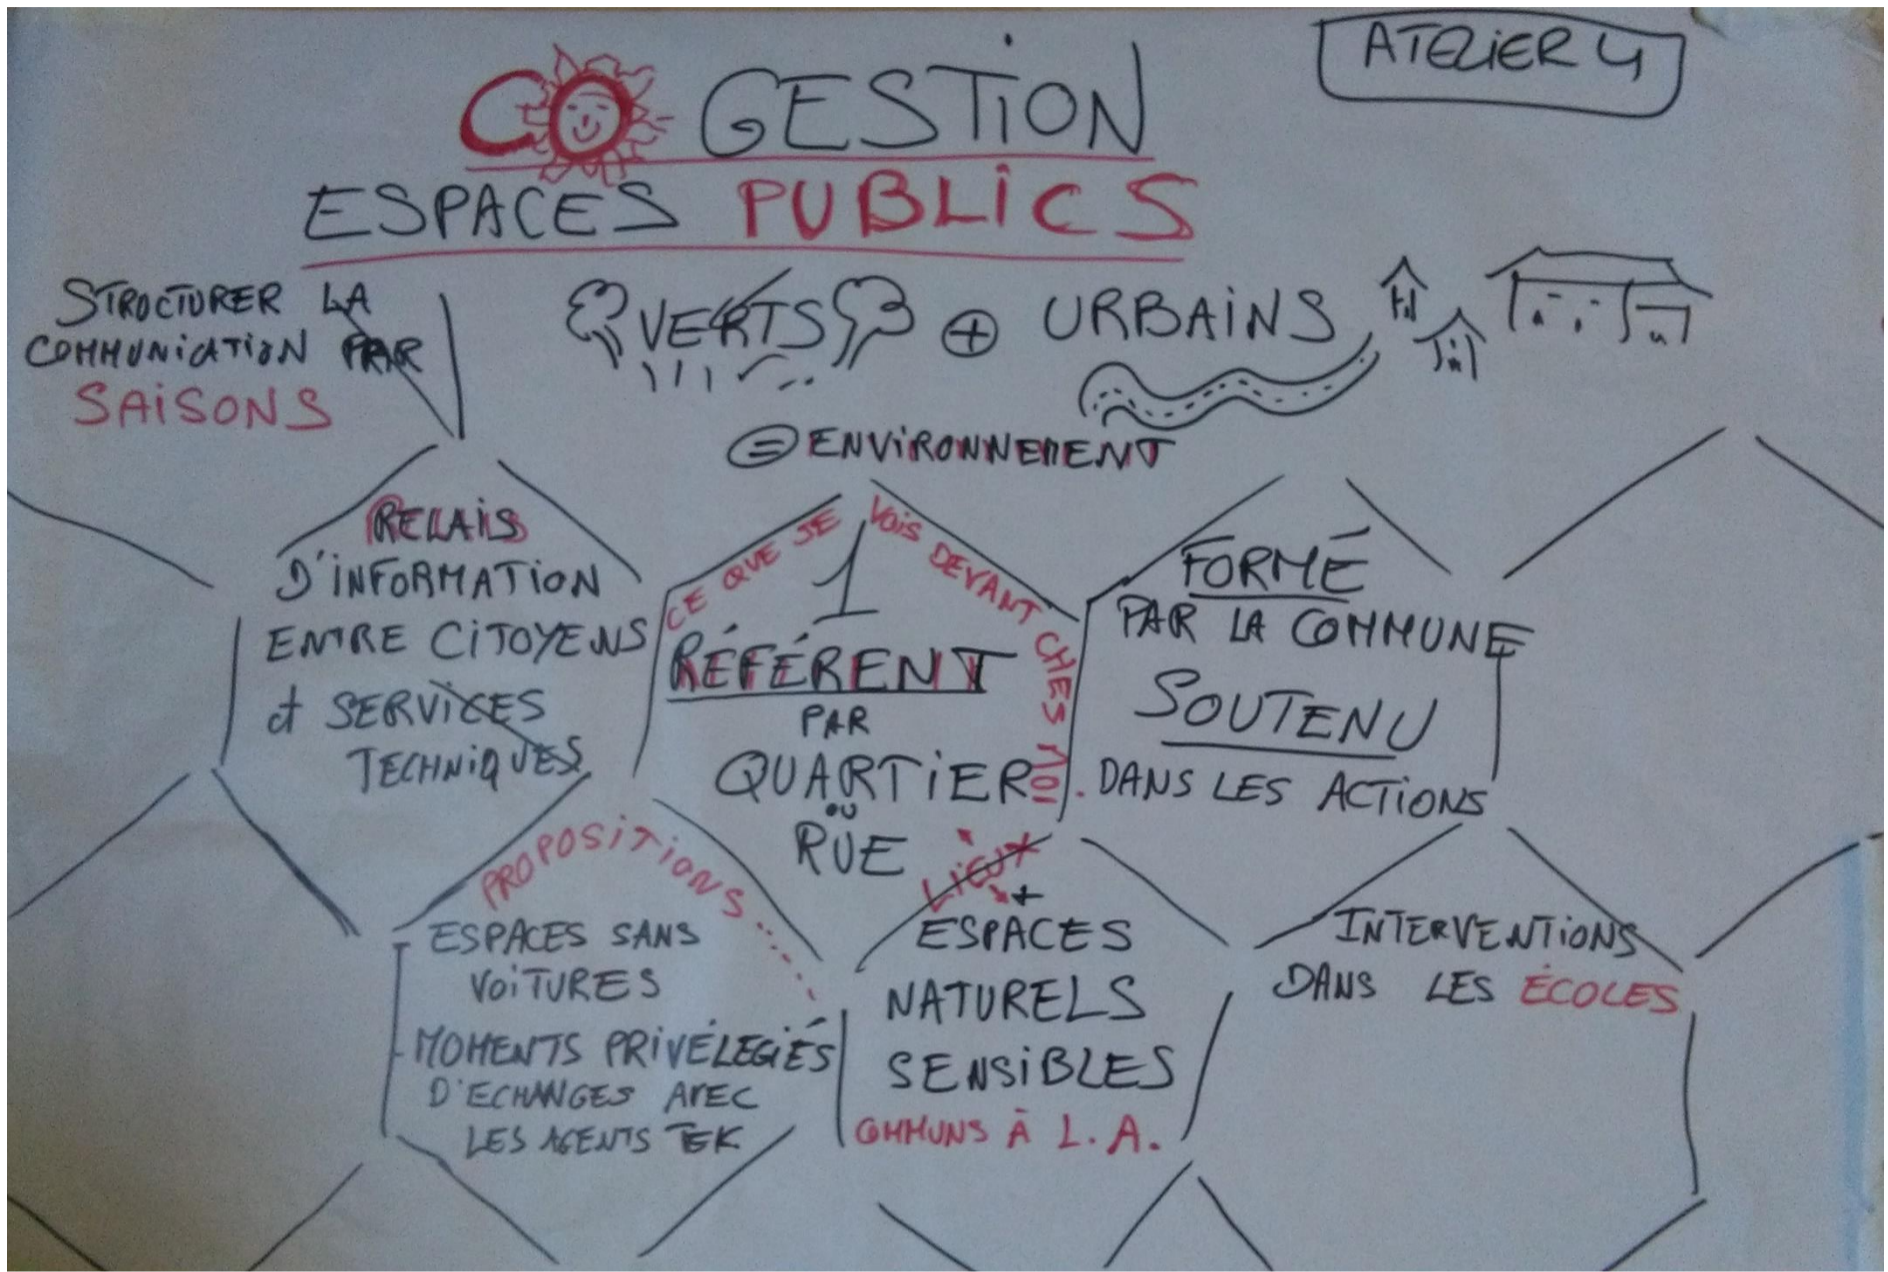 ATELIER 4
CO GESTION
ESPACES PUBLICS
STRUCTURER LA
COMMUNICATION PAR
SAISONS
VERTS + URBAINS
= ENVIRONNEMENT
RELAIS
D'INFORMATION
ENTRE CITOYENS
et SERVICES
TECHNIQUES
CE QUE JE VOIS DEVANT CHES MOI
1
RÉFÉRENT
PAR
QUARTIER
OU
RUE
FORMÉ
PAR LA COMMUNE
SOUTENU
DANS LES ACTIONS
PROPOSITIONS.....
ESPACES SANS
VOITURES
MOMENTS PRIVÉLEGIÉS
D'ECHANGES AVEC
LES AGENTS TEK
LIEUX
+
ESPACES
NATURELS
SENSIBLES
COMMUNS À L.A.
INTERVENTIONS
DANS LES ÉCOLES